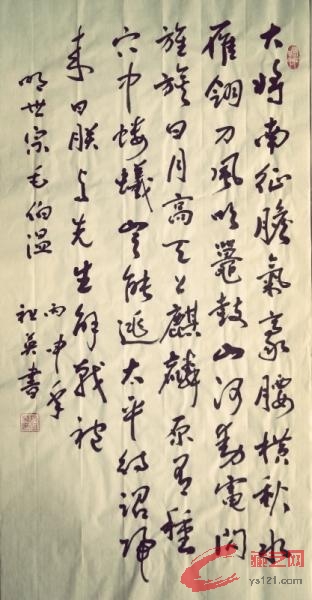 大将南征膽氣豪腰横秋水
雁翎刀風吹鼉鼓山河動電闪
旌旗日月高天上麒麟原有種
穴中螻蟻豈能逃太平待詔歸
来日朕与先生解戰袍
明世宗毛伯温
丙申年
祖英書
ys121.com